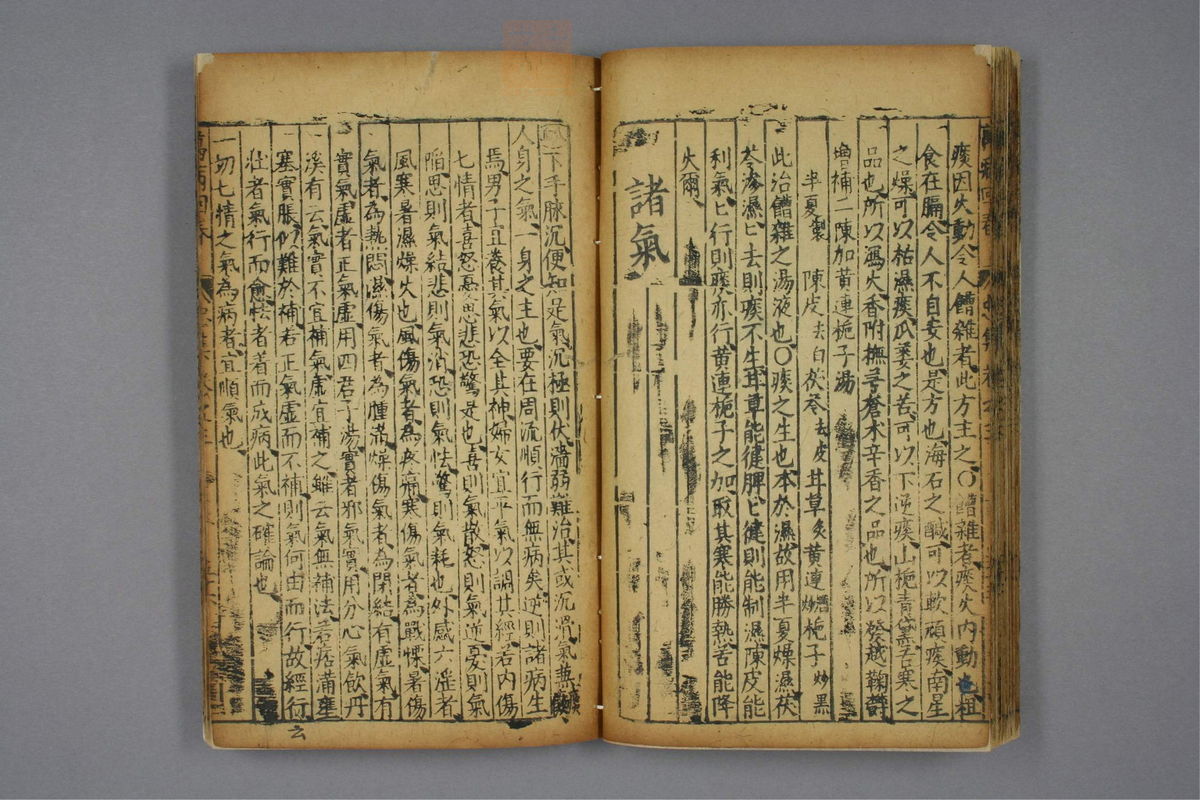 痰因火動令人饋雜者此方主之○饋雜者痰火内動也粗
食在膈令人不自安也是方也海石之鹹可以軟頑痰南星
之燥可以枯濕痰瓜蔞之苦可以下逆痰山梔青黛苦寒之
品也所以瀉火香附撫芎蒼朮辛香之品也所以發越鞠鬱
增補二陳加黄連梔子湯
半夏製 陳皮去白 茯苓去皮 甘草炙 黄連炒 梔子炒黑
此治饋雜之湯液也○痰之生也本於濕故用半夏燥濕茯
苓滲濕匕去則痰不生甘草能健脾匕健則能制濕陳皮能
利氣匕行則痰亦行黄連梔子之加取其寒能勝熱苦能降
火爾
諸氣
下手脉沉便知是氣沉極則伏濇弱難治其或沉滑氣兼痰
人身之氣一身之主也要在周流順行而無病矣逆則諸病生
焉男子宜養其氣以全其神婦女宜平氣以調其經若内傷
七情者喜怒憂思悲恐驚是也喜則氣散怒則氣逆憂則氣
陷思則氣結悲則氣消恐則氣怯驚則氣耗也外感六淫者
風寒暑濕燥火也風傷氣者為疼痛寒傷氣者為戰慄暑傷
氣者為熱悶濕傷氣者為腫滿燥傷氣者為閉結有虚氣有
實氣虚者正氣虚用四君子湯實者邪氣實用分心氣飲丹
溪有云氣實不宜補氣虚宜補之雖云氣無補法若痞滿壅
塞實脹似難於補若正氣虚而不補則氣何由而行故經行
壮者氣行而愈怯者著而成病此氣之確論也
一切七情之氣為病者宜順氣也
萬病回春
云